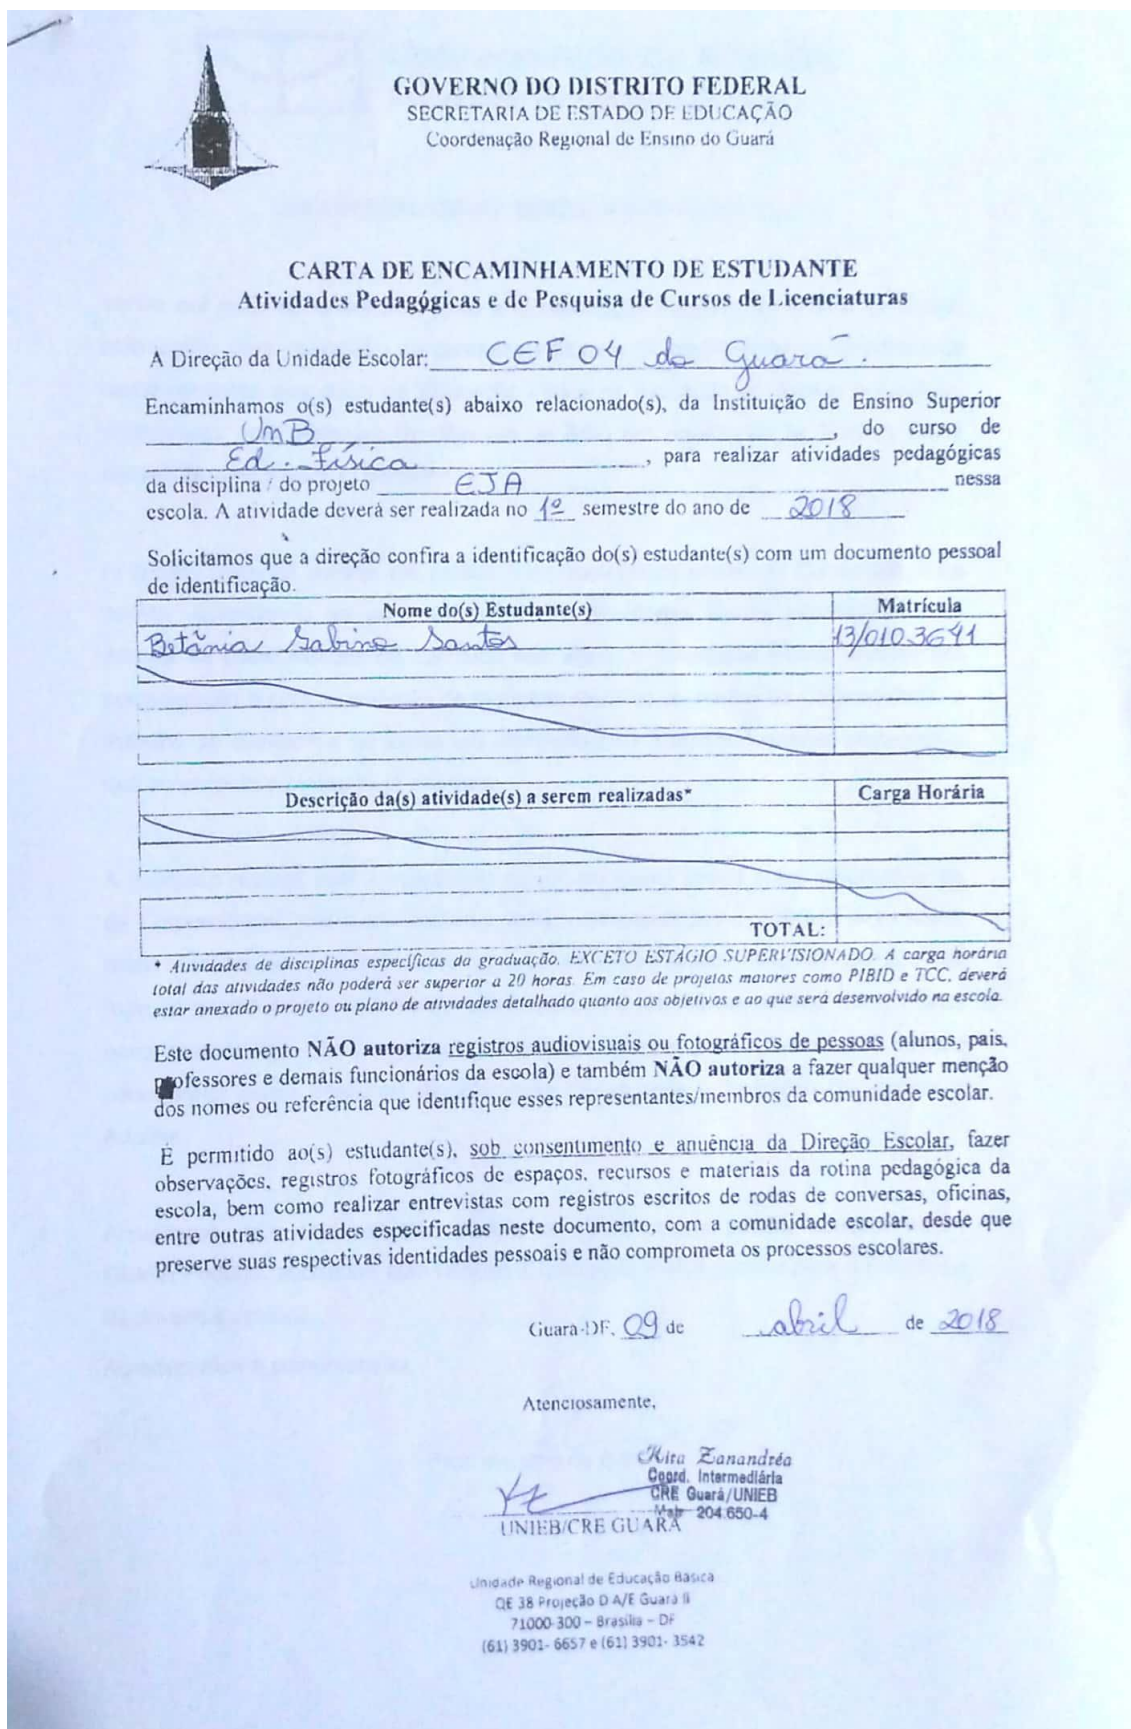 GOVERNO DO DISTRITO FEDERAL
SECRETARIA DE ESTADO DE EDUCAÇÃO
Coordenação Regional de Ensino do Guará
CARTA DE ENCAMINHAMENTO DE ESTUDANTE
Atividades Pedagógicas e de Pesquisa de Cursos de Licenciaturas
A Direção da Unidade Escolar: CEF 04 do Guará.
Encaminhamos o(s) estudante(s) abaixo relacionado(s), da Instituição de Ensino Superior
UnB, do curso de
Ed. Física, para realizar atividades pedagógicas
da disciplina / do projeto EJA nessa
escola. A atividade deverá ser realizada no 1º semestre do ano de 2018
Solicitamos que a direção confira a identificação do(s) estudante(s) com um documento pessoal
de identificação.
Nome do(s) Estudante(s) Matrícula
Betânia Sabino Santos 13/0103641
Descrição da(s) atividade(s) a serem realizadas* Carga Horária
TOTAL:
* Atividades de disciplinas específicas da graduação, EXCETO ESTÁGIO SUPERVISIONADO. A carga horária
total das atividades não poderá ser superior a 20 horas. Em caso de projetos maiores como PIBID e TCC, deverá
estar anexado o projeto ou plano de atividades detalhado quanto aos objetivos e ao que será desenvolvido na escola.
Este documento NÃO autoriza registros audiovisuais ou fotográficos de pessoas (alunos, pais,
professores e demais funcionários da escola) e também NÃO autoriza a fazer qualquer menção
dos nomes ou referência que identifique esses representantes/membros da comunidade escolar.
É permitido ao(s) estudante(s), sob consentimento e anuência da Direção Escolar, fazer
observações, registros fotográficos de espaços, recursos e materiais da rotina pedagógica da
escola, bem como realizar entrevistas com registros escritos de rodas de conversas, oficinas,
entre outras atividades especificadas neste documento, com a comunidade escolar, desde que
preserve suas respectivas identidades pessoais e não comprometa os processos escolares.
Guará-DF, 09 de abril de 2018
Atenciosamente,
Kita Zanandréa
Coord. Intermediária
CRE Guará/UNIEB
Matr 204.650-4
UNIEB/CRE GUARÁ
Unidade Regional de Educação Básica
QE 38 Projeção D A/E Guará II
71000-300 – Brasília – DF
(61) 3901- 6657 e (61) 3901- 3542